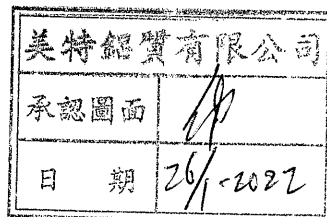 美特鋁質有限公司
承認圖面
日 期 26/1-2022